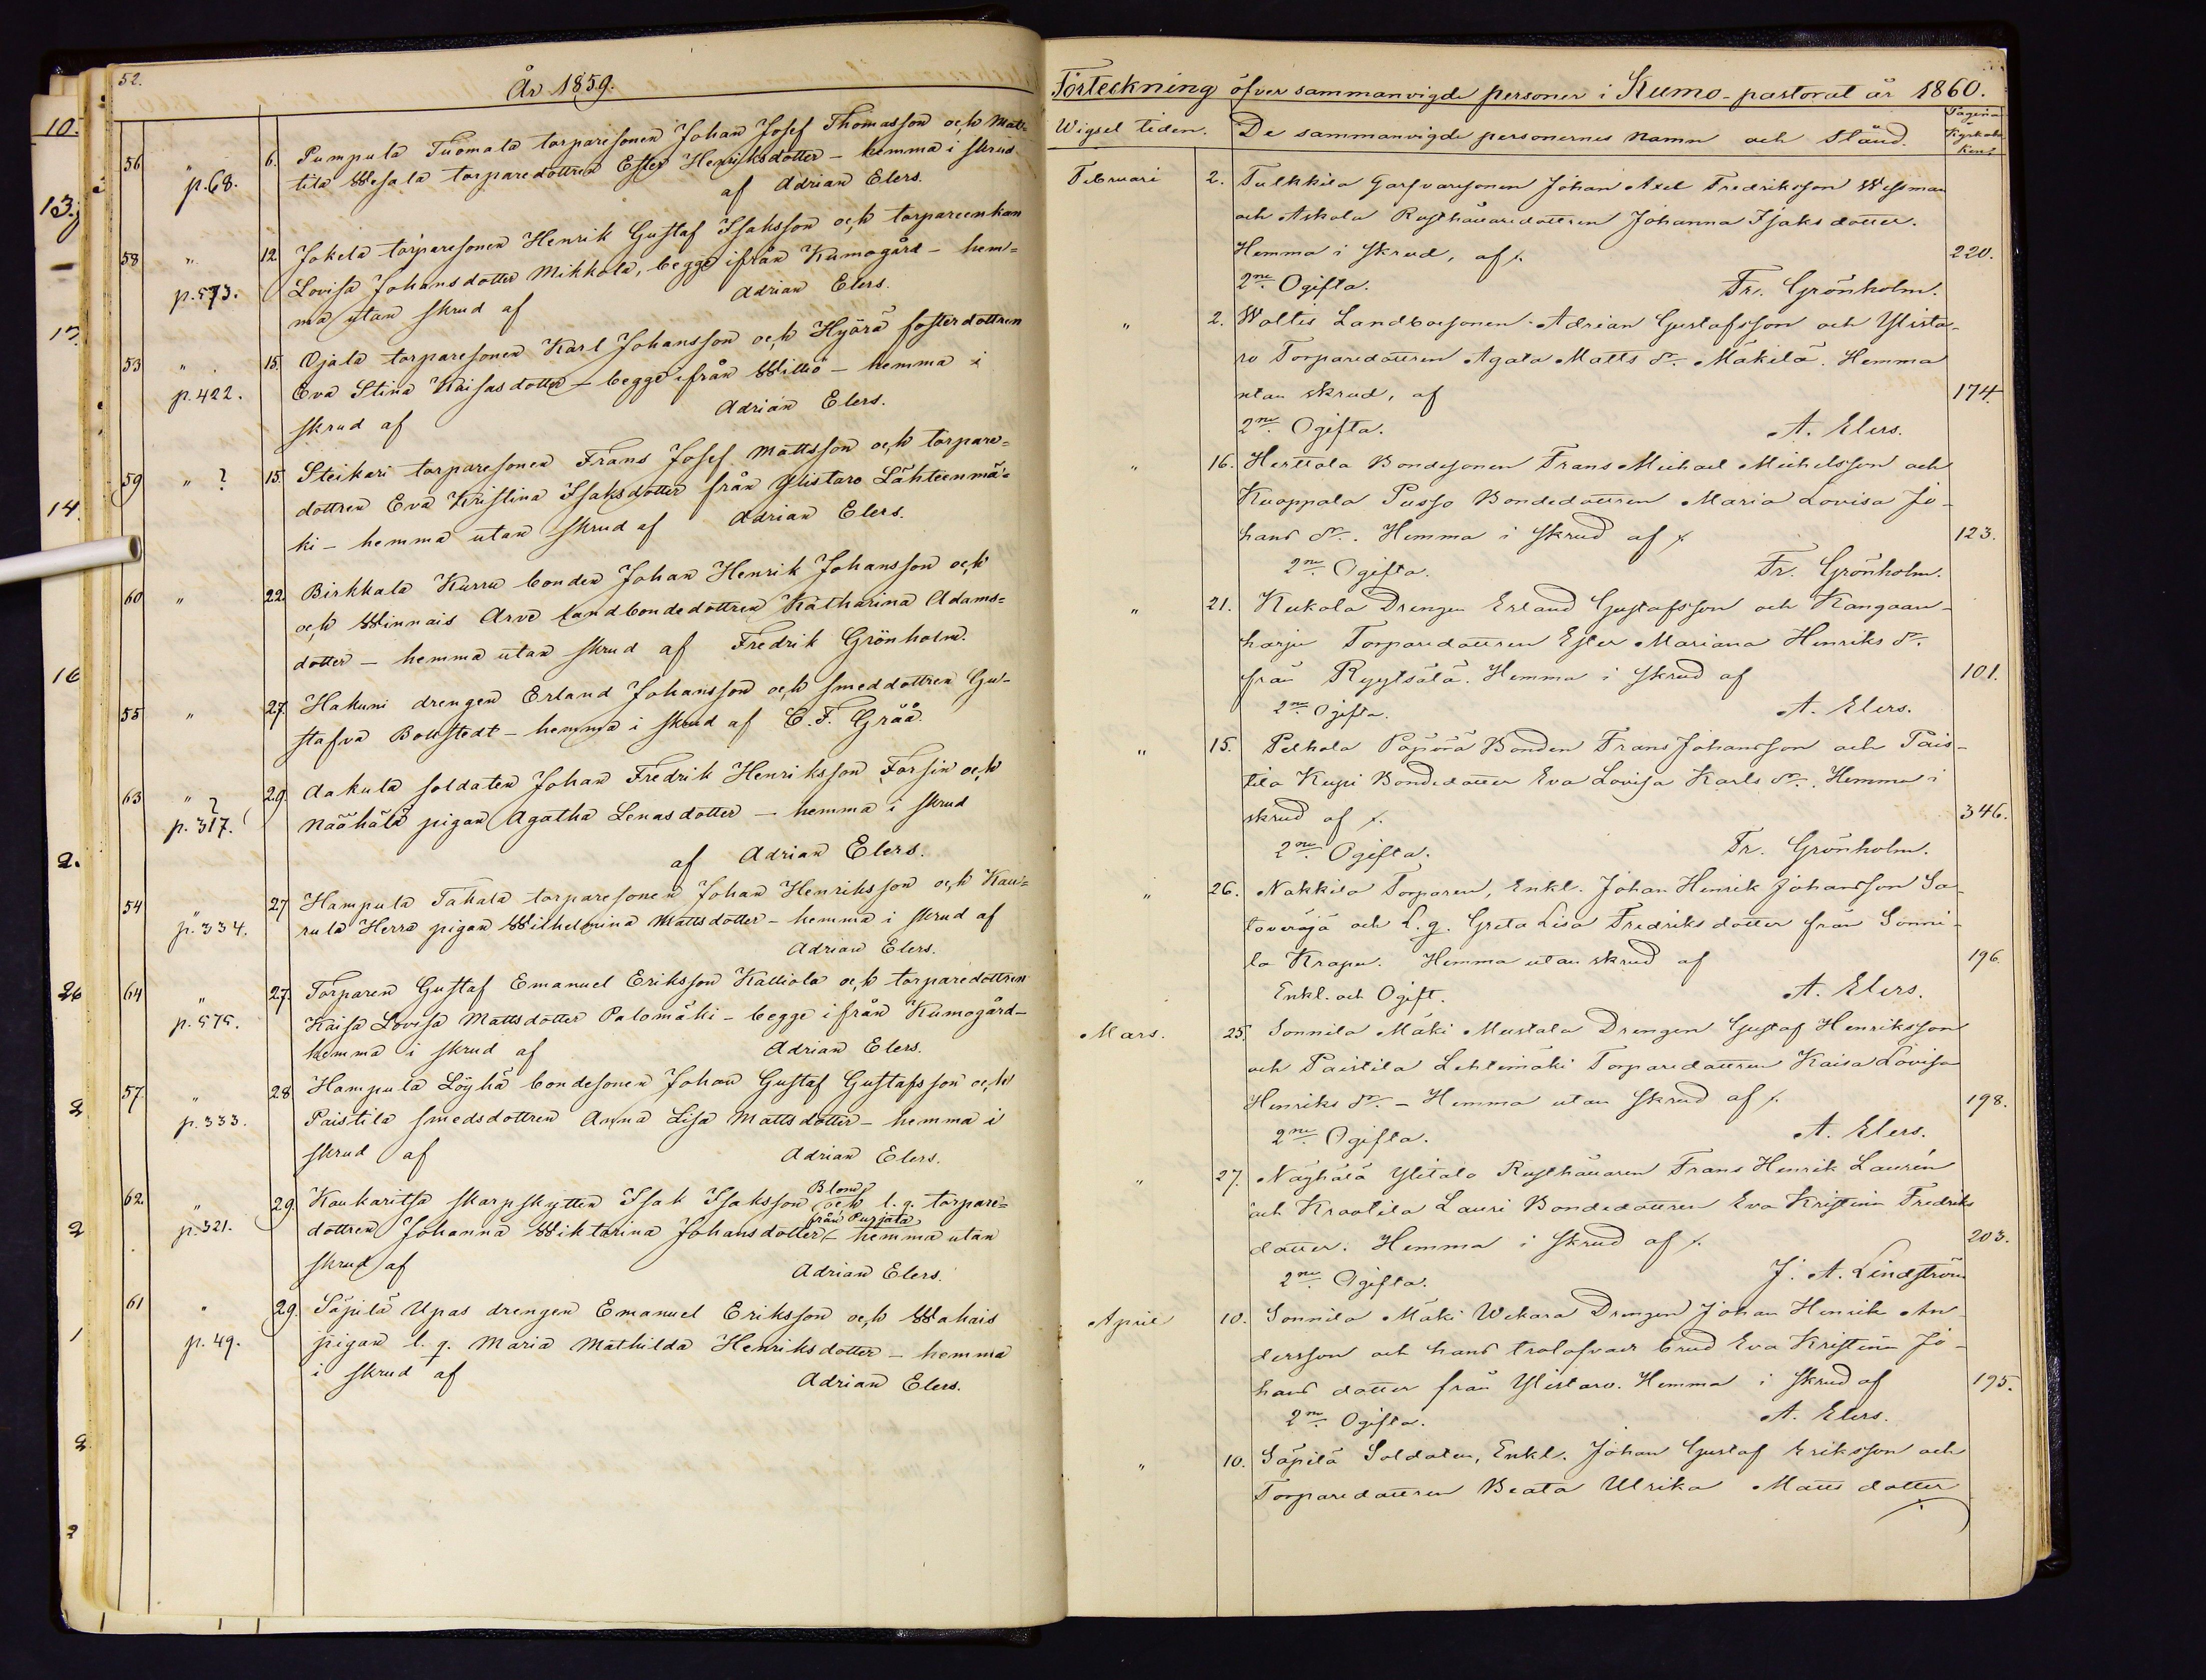 52.
År 1859.
56 " p.68. 6. Pumpula Tuomala torparesonen Johan Josef Thomasson och Mat-
tila Wesala torparedottren Ester Henriksdotter – hemma i skrud
af Adrian Elers.
58 " p.573. 12 Jokela torparesonen Henrik Gustaf Isaksson och torpareenkan
Lovisa Johansdotter Mikkola, begge ifrån Kumogård – hem=
ma utan skrud af Adrian Elers.
53 " p.422. 15. Ojala torparesonen Karl Johansson och Hyörä fosterdottren
Eva Stina Kaisasdotter – begge ifrån Wittio – hemma i
skrud af Adrian Elers.
59 " ? 15. Steikari torparesonen Frans Josef Mattsson och torpare=
dottren Eva Kristina Isaksdotter från Ylistaro Lähteenmä=
ki – hemma utan skrud af Adrian Elers.
60 " 22. Birkkala Kurru bonden Johan Henrik Johansson och
och Winnais Arve landbondedottren Katharina Adams=
dotter – hemma utan skrud af Fredrik Grönholm.
55 " 27. Hakuni drengen Erland Johansson och smeddottren Gu-
stafva Bollstedt – hemma i skrud af C. F. Gråå.
63 " ? p. 317. 29. Aakula soldaten Johan Fredrik Henriksson Forsin och
Näähälä pigan Agatha Lenasdotter – hemma i skrud
af Adrian Elers.
54 " p.334. 27 Hampula Tahala torparesonen Johan Henriksson och Kau=
rula Herra pigan Wilhelmina Mattsdotter – hemma i skrud af
Adrian Elers.
64 " p.575. 27. Torparen Gustaf Emanuel Eriksson Kalliola och torparedottren
Kaisa Lovisa Mattsdotter Palomäki – begge ifrån Kumogård –
hemma i skrud af Adrian Elers.
57. " p.333. 28 Hampula Löyhä bondesonen Johan Gustaf Gustafsson och
Paistila smedsdottren Anna Lisa Mattsdotter – hemma i
skrud af Adrian Elers.
62. " p.321. 29. Kaukaritsa skarpskytten Isak Isaksson Blom och l. q. torpare=
dottren Johanna Wiktorina Johansdotter från Purjala – hemma utan
skrud af Adrian Elers.
61 " p.49. 29. Säpilä Upas drengen Emanuel Eriksson och Wahais
pigan l. q. Maria Mathilda Henriksdotter – hemma
i skrud af Adrian Elers.
Förteckning öfver sammanvigde personer i Kumo-pastorat år 1860.
Wigsel tiden. De sammanvigde personernes namn och stånd. Pagina i Kyrkobo
Februari 2. Tulkkila Garfvaresonen Johan Axel Fredriksson Wessman
och Askola Rusthållaredottren Johanna Isaksdotter.
Hemma i skrud, af 220.
2ne. Ogifta. Fr. Grönholm.
" 2. Woltis Landboesonen Adrian Gustafsson och Ylista-
ro Torparedottren Agata Matts dr. Mäkilä. Hemma
utan skrud, af 174.
2ne. Ogifta. A. Elers.
" 16. Herttola Bondesonen Frans Michael Michelsson och
Kuoppala Pusso Bondedottren Maria Lovisa Jo-
hans dr. Hemma i skrud af 123.
2ne. Ogifta. Fr. Grönholm.
" 21. Kukola Drengen Erland Gustafsson och Kangaan-
harju Torparedottren Ester Mariana Henriks dr.
från Ryytsälä. Hemma i skrud af 101.
2ne. Ogifta. A. Elers.
" 15. Pelhola Päpörä Bonden Frans Johansson och Pais-
tila Kupi Bondedotter Eva Lovisa Karls dr. Hemma i
skrud af 346.
2ne. Ogifta. Fr. Grönholm.
" 26. Nakkila Torparen, Enkl. Johan Henrik Johansson Sa-
loveräjä och L.q. Greta Lisa Fredriks dotter från Sonni-
la Krapu. Hemma utan skrud af 196.
Enkl. och Ogift. A. Elers.
Mars. 25. Sonnila Mäki Mustala Drengen Gustaf Henriksson
och Paistila Lehtimäki Torparedottren Kaisa Lovisa
Henriks dr. – Hemma utan skrud af 198.
2ne. Ogifta. A. Elers.
" 27. Näyhälä Ylitalo Rusthållaren Frans Henrik Laurén
och Kraotila Lauri Bondedottren Eva Kristina Fredriks
dotter. Hemma i skrud af 203.
2ne. Ogifta. J. A. Lindström
April 10. Sonnila Mäki Wekara Drengen Johan Henrik An-
dersson och hans trolofvade brud Eva Kristina Jo-
hans dotter från Ylistaro. Hemma i skrud af 195.
2ne. Ogifta. A. Elers.
" 10. Säpilä Soldaten, Enkl. Johan Gustaf Eriksson och
Torparedottren Beata Ulrika Matts dotter